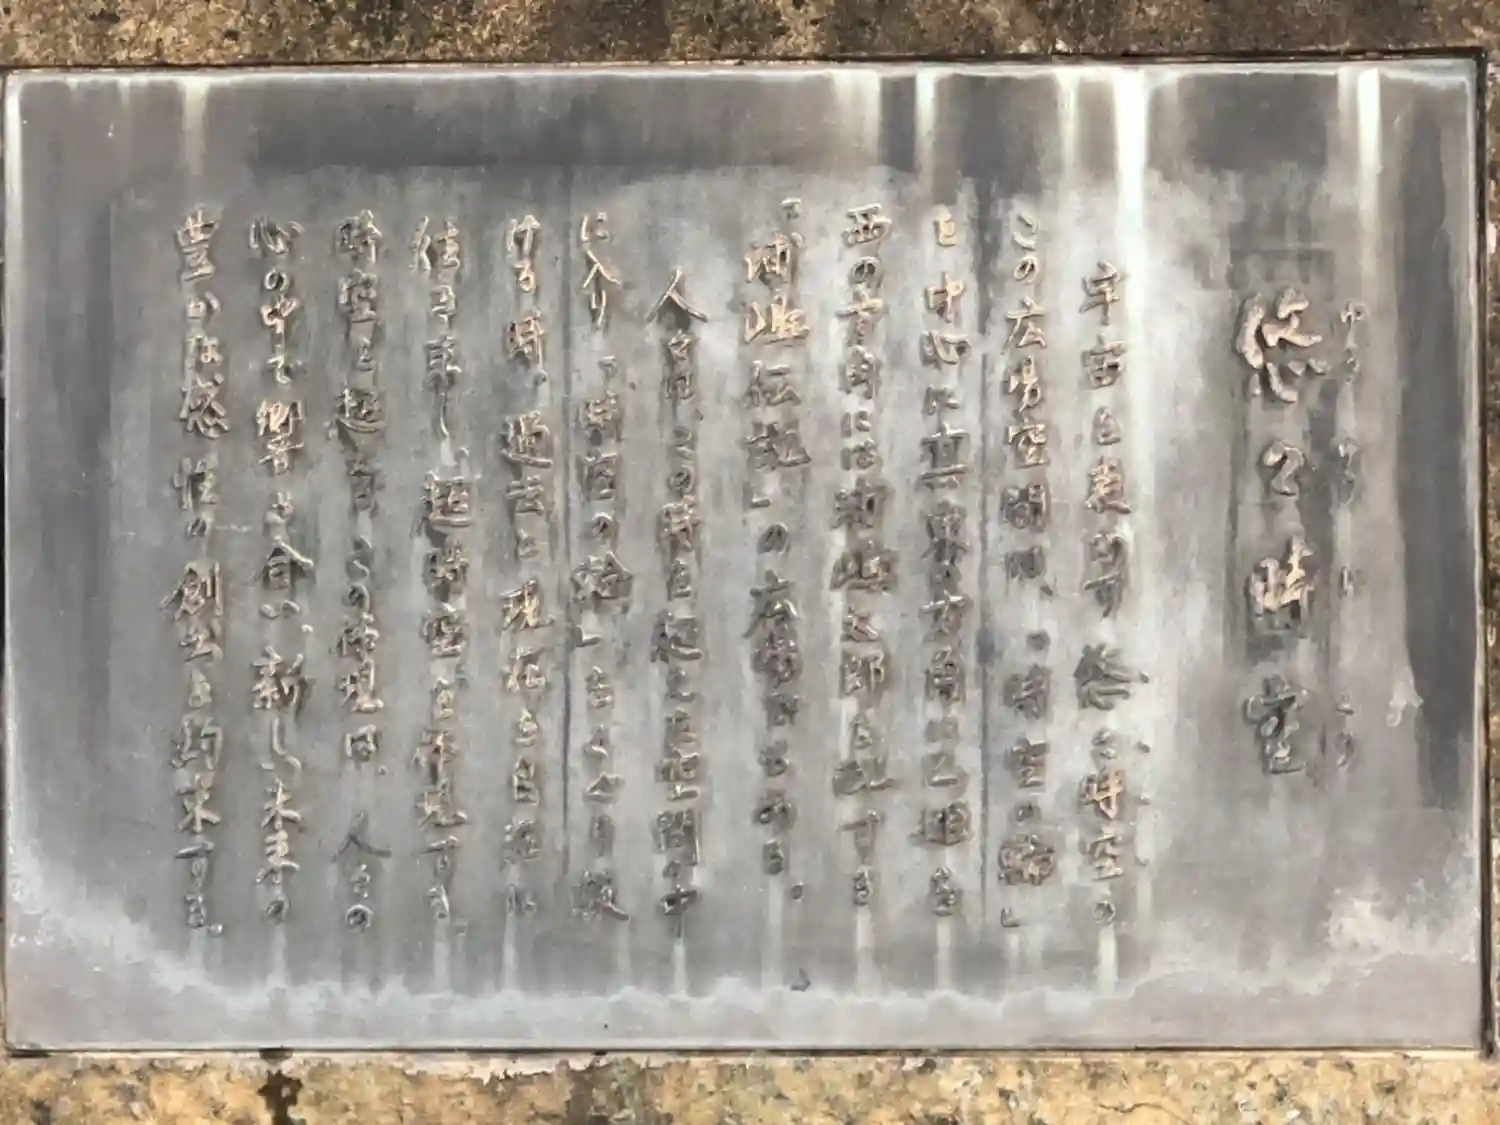 悠久時空
宇宙を表わす悠久時空の
この広場空間は、「時空の輪」
を中心に真東の方角に乙姫を
西の方角には浦嶋太郎を配する
「浦嶋伝説」の広場でもある。
人々は、この時を超えた空間の中
に入り「時空の輪」をくぐり抜
ける時、過去と現在を自在に
往き来し、超時空を体現する。
時空を超えたこの体現は、人々の
心の中で響き合い、新しい未来の
豊かな感性の創出を約束する。